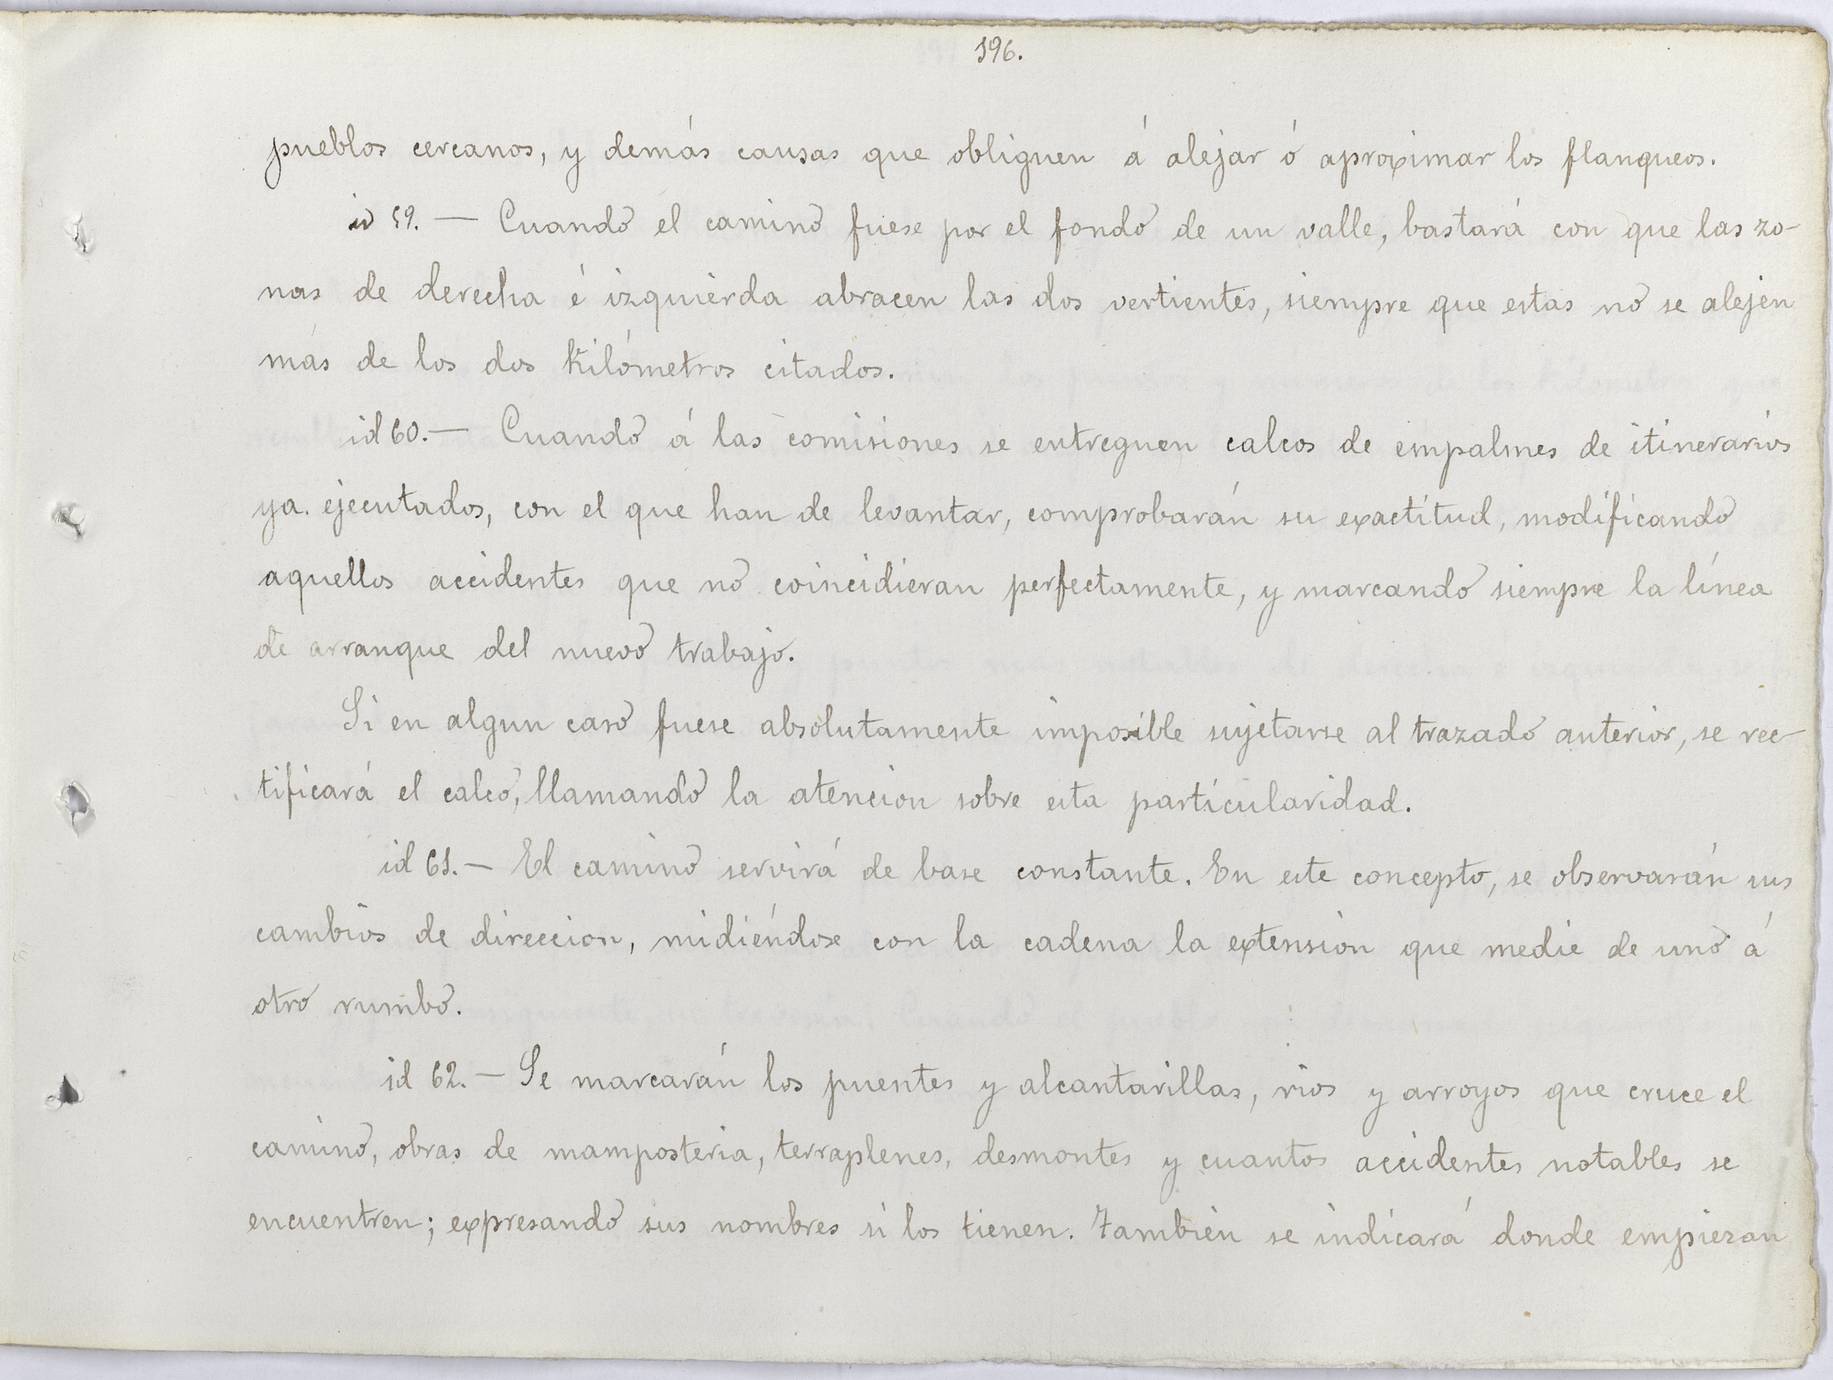 196.
pueblos cercanos, y demás causas que obliguen á alejar ó aproximar los flanqueos.
id 59. — Cuando el camino fuese por el fondo de un valle, bastará con que las zo-
nas de derecha é izquierda abracen las dos vertientes, siempre que estas no se alejen
más de los dos Kilómetros citados.
id 60. — Cuando á las comisiones se entreguen calcos de empalmes de itinerarios
ya ejecutados, con el que han de levantar, comprobarán su exactitud, modificando
aquellos accidentes que no coincidieran perfectamente, y marcando siempre la línea
de arranque del nuevo trabajo.
Si en algun caso fuese absolutamente imposible sujetarse al trazado anterior, se rec-
tificará el calco, llamando la atencion sobre esta particularidad.
id 61. — El camino servirá de base constante. En este concepto, se observarán sus
cambios de direccion, midiéndose con la cadena la extension que medie de uno á
otro rumbo.
id 62. — Se marcarán los puentes y alcantarillas, rios y arroyos que cruce el
camino, obras de mamposteria, terraplenes, desmontes y cuantos accidentes notables se
encuentren; expresando sus nombres si los tienen. Tambien se indicará donde empiezan